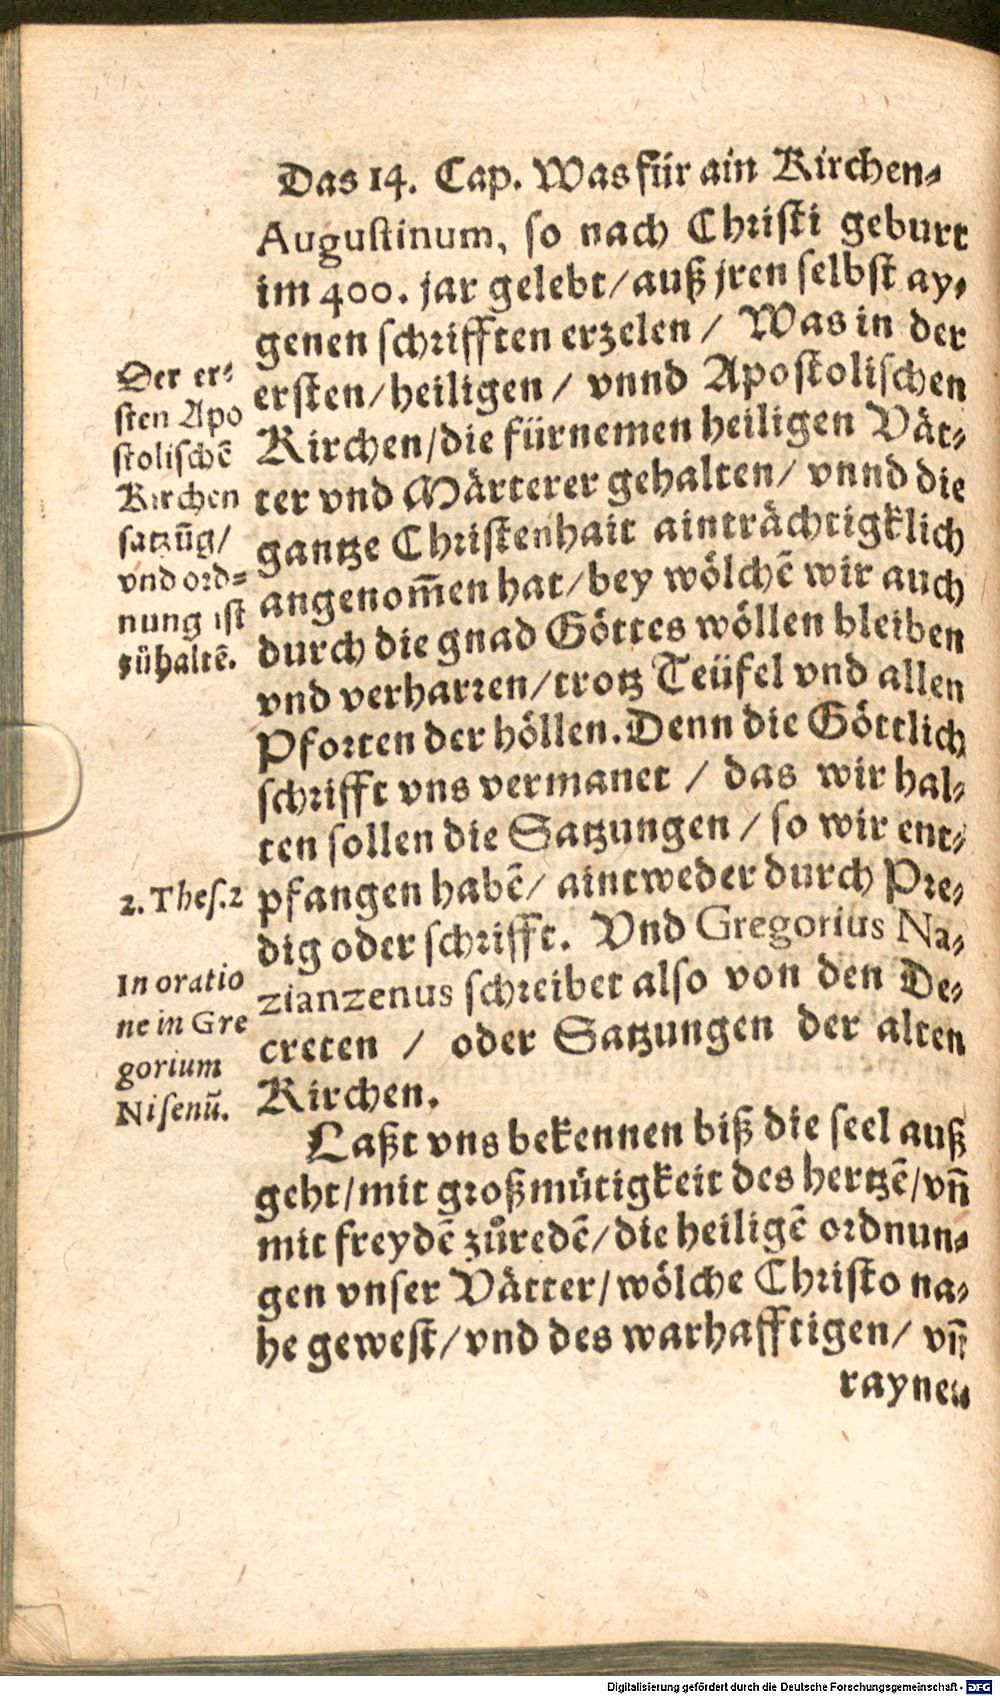 Das 14. Cap. Was für ain Kirchen-
Augustinum, so nach Christi geburt
im 400. jar gelebt/auß jren selbst ay-
genen schrifften erzelen / Was in der
ersten/heiligen / vnnd Apostolischen
Kirchen/die fürnemen heiligen Vät-
ter vnd Märterer gehalten/ vnnd die
gantze Christenhait ainträchtigklich
angenom̃en hat/bey wölchẽ wir auch
durch die gnad Göttes wöllen bleiben
vnd verharren/trotz Teüfel vnd allen
Pforten der höllen. Denn die Göttlich
schrifft vns vermanet / das wir hal-
ten sollen die Satzungen / so wir ent-
pfangen habẽ/ aintweder durch Pre-
dig oder schrifft. Vnd Gregorius Na-
zianzenus schreibet also von den De-
creten / oder Satzungen der alten
Kirchen.
Laßt vns bekennen biß die seel auß
geht/mit großmütigkeit des hertzẽ/vñ
mit freydẽ zůredẽ/die heiligẽ ordnun-
gen vnser Vätter/wölche Christo na-
he gewest/vnd des warhafftigen/ vñ
raynen
Der er-
sten Apo
stolischẽ
Kirchen
satzũg/
vnd ord-
nung ist
zühaltẽ.
2. Thes.2
In oratio
ne in Gre
gorium
Nisenũ.
Digitalisierung gefördert durch die Deutsche Forschungsgemeinschaft - DFG